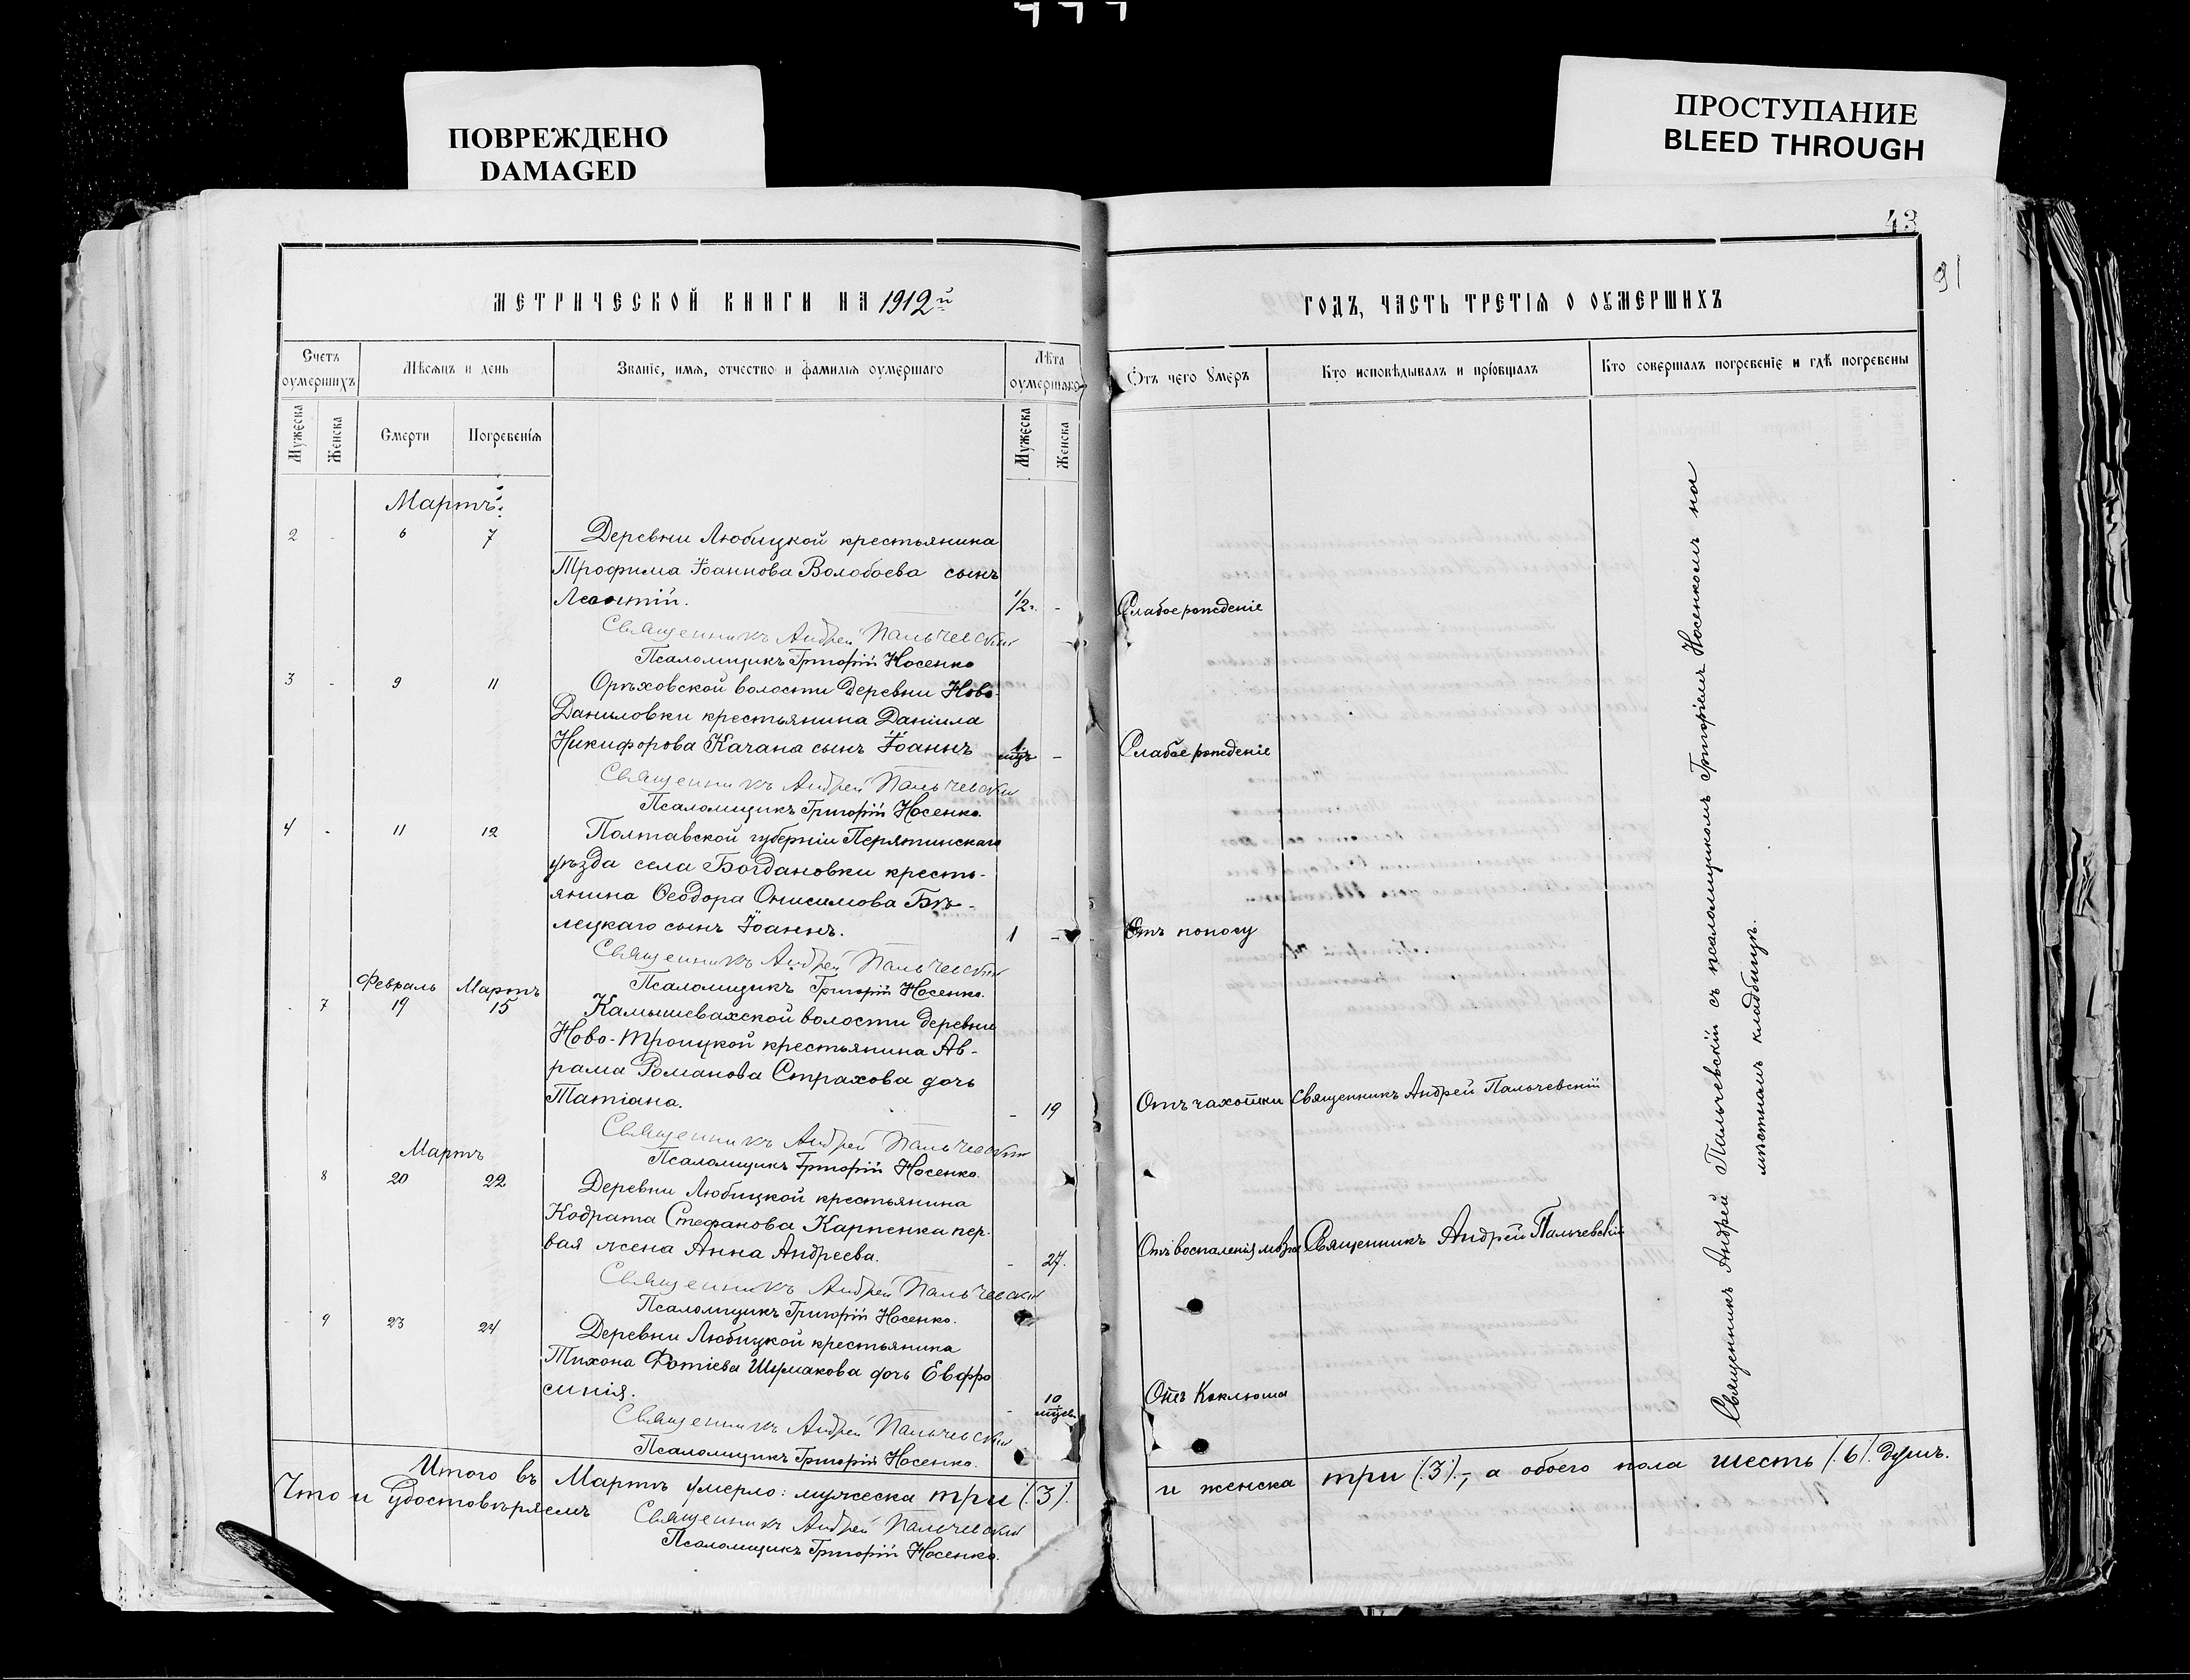 ПОВРЕЖДЕНО
DAMAGED
ПРОСТУПАНИЕ
BLEED THROUGH
43
91
МЕТРИЧЕСКОЙ КНИГИ НА 1912й
Счетъ оумершихъ
Мѣсяцъ и день
Званіе, имя, отчество и фамилія оумершаго
Лѣта оумершаго
Мужеска
Женска
Смерти
Погребенія
Мужеска
Женска
Мартъ:
2 - 6 7 Деревни Любицкой крестьянина
Трофима Іоаннова Волобоева сынъ
Леонтій. 1/2г. -
Священникъ Андрей Пальчевскій
Псаломщикъ Григорій Носенко
3 - 9 11 Орѣховской волости деревни Ново-
Даниловки крестьянина Даніила
Никифорова Качана сынъ Іоаннъ 1 мцъ -
Священникъ Андрей Пальчевскій
Псаломщикъ Григорій Носенко.
4 - 11 12 Полтавской губерніи Перятинскаго
уѣзда села Богдановки кресть-
янина Ѳеодора Онисимова Бѣ-
лецкаго сынъ Іоаннъ. 1 -
Священникъ Андрей Пальчевскій
Псаломщикъ Григорій Носенко.
Февраль Мартъ
- 7 19 15 Камышевахской волости деревни
Ново-Троицкой крестьянина Ав-
рама Романова Страхова дочь
Татіана. - 19
Священникъ Андрей Пальчевскій
Псаломщикъ Григорій Носенко.
Мартъ
- 8 20 22 Деревни Любицкой крестьянина
Кодрата Стефанова Карпенка пер-
вая жена Анна Андреева. - 27.
Священникъ Андрей Пальчевскій
Псаломщикъ Григорій Носенко.
- 9 23 24 Деревни Любицкой крестьянина
Тихона Фотіева Шумакова дочь Евфро
синія. - 10 мцев.
Священникъ Андрей Пальчевскій
Псаломщикъ Григорій Носенко.
Итого въ Мартѣ умерло: мужеска три (3).
Что и удостовѣряемъ
Священникъ Андрей Пальчевскій
Псаломщикъ Григорій Носенко.
ГОДЪ, ЧАСТЬ ТРЕТІЯ О ОУМЕРШИХЪ
Отъ чего умеръ
Кто исповѣдывалъ и пріобщалъ
Кто совершалъ погребеніе и гдѣ погребены
Слабое рожденіе
Слабое рожденіе
Отъ поносу
Отъ чахотки Священникъ Андрей Пальчевскій
Отъ воспаленія мозга Священникъ Андрей Пальчевскій
Отъ Коклюша
Священникъ Андрей Пальчевскій съ псаломщикомъ Григоріемъ Носенкомъ на
мѣстномъ кладбищѣ.
и женска три (3).-, а обоего пола шесть (6). душъ.